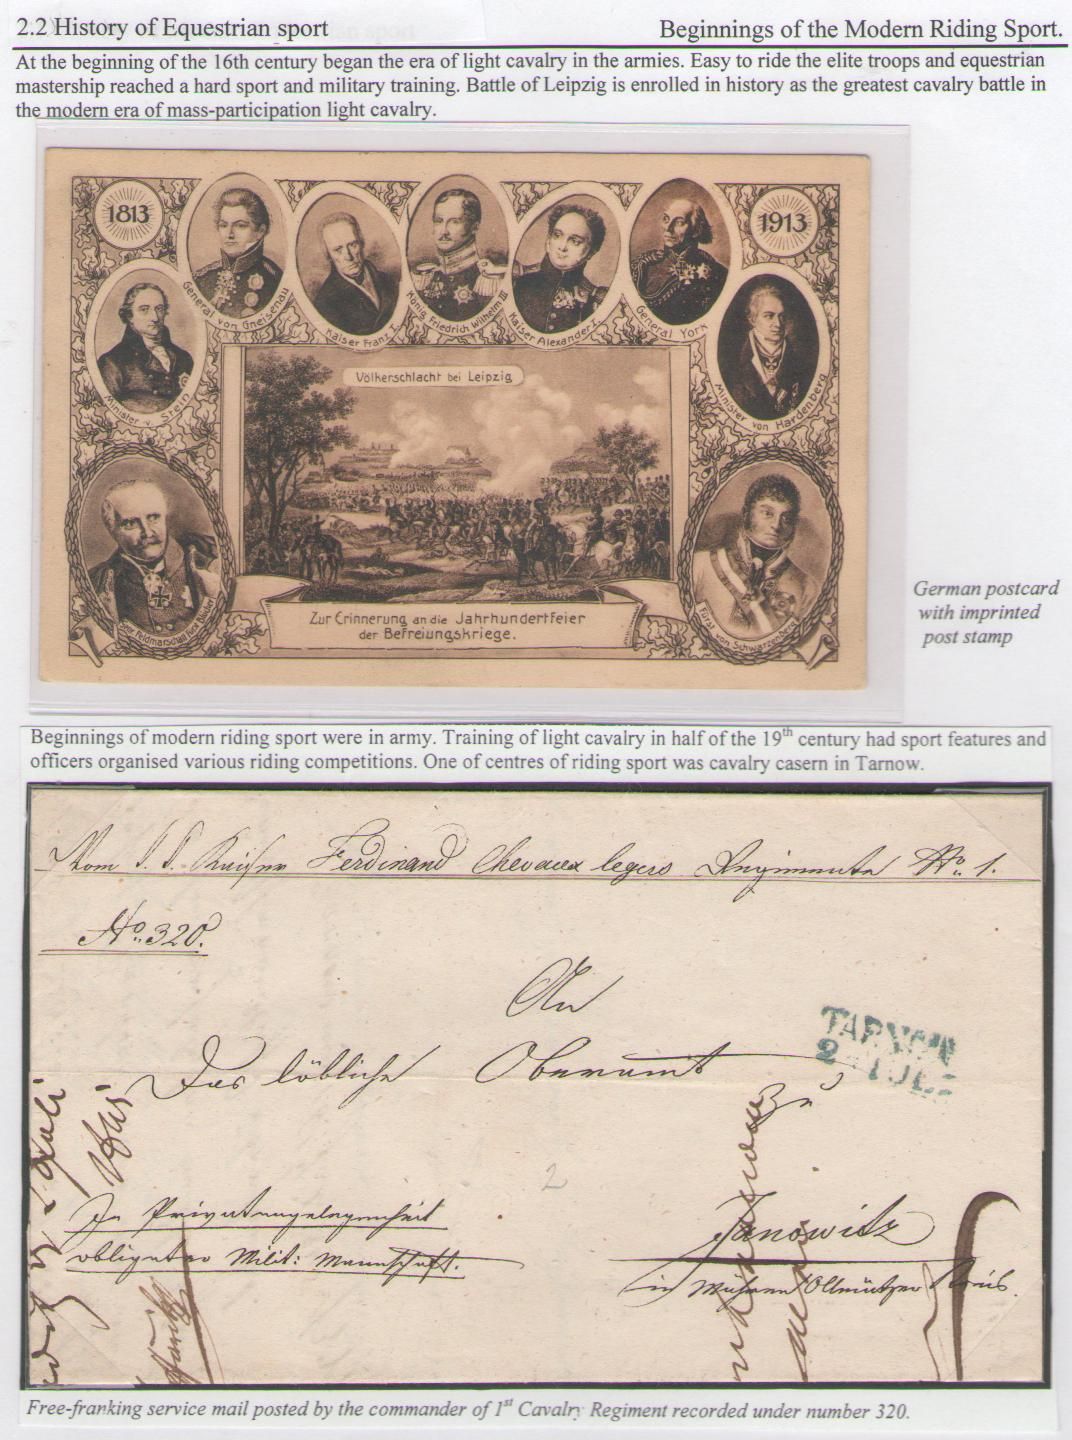 2.2 History of Equestrian sport
Beginnings of the Modern Riding Sport.
At the beginning of the 16th century began the era of light cavalry in the armies. Easy to ride the elite troops and equestrian
mastership reached a hard sport and military training. Battle of Leipzig is enrolled in history as the greatest cavalry battle in
the modern era of mass-participation light cavalry.
1813
1913
General von Gneisenau
Kaiser Franz I.
König Friedrich Wilhelm III
Kaiser Alexander I.
General York
Minister v. Stein
Minister von Hardenberg
Völkerschlacht bei Leipzig
Feldmarschall Fürst Blücher
Fürst von Schwarzenberg
Zur Erinnerung an die Jahrhundertfeier
der Befreiungskriege.
German postcard
with imprinted
post stamp
Beginnings of modern riding sport were in army. Training of light cavalry in half of the 19th century had sport features and
officers organised various riding competitions. One of centres of riding sport was cavalry casern in Tarnow.
Vom Kaiser Ferdinand Chevaux legers Regimente No. 1.
No. 320.
An
Das löbliche Oberamt
TARNOW
2 JUL
zu
2
In Privatangelegenheit
obligater Milit: Mannschaft.
Janowitz
in Mähren Ollmützer Kreis.
Free-franking service mail posted by the commander of 1st Cavalry Regiment recorded under number 320.